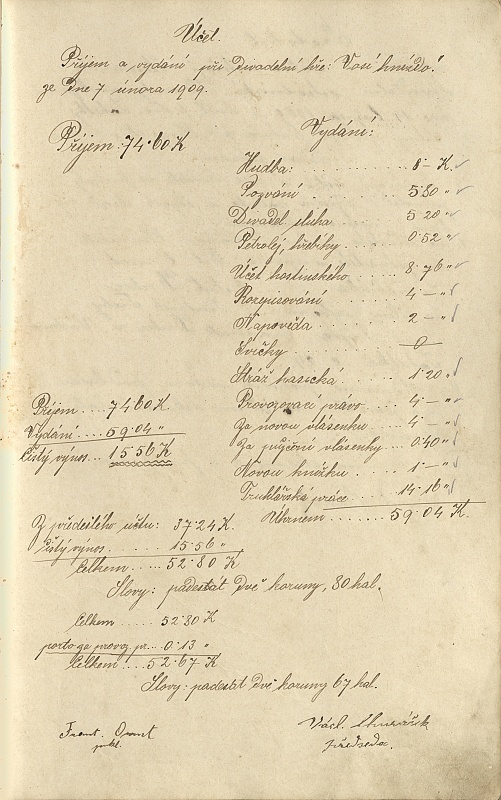 Účet.
Příjem a vydání při Divadelní hře: Vosí hnízdo!
ze Dne 7 února 1909.
Příjem: 74·60 K
Vydání:
Hudba: 8 — K.
Pozvání . 5·80 "
Divadel. sluha 5 20 "
Petrolej, hřebíky 0·52 "
Účet hostinského 8·76 "
Rozepisování 4 — "
Napověda 2 — "
Svíčky —0—
Stráž hasická 1·20 "
Provozovací právo 4 — "
Za novou vlásenku 4 — "
Za půjčené vlásenky 0·40 "
Novou knížku 1 — "
Truhlářská práce 14·16 "
Úhrnem 59·04 K.
Příjem .... 74 60 K.
Vydání .... 59·04 "
Čistý výnos ... 15 56 K
Z předešlého účtu: 37·24 K.
Čistý výnos .... 15·56 "
Celkem .... 52·80 K
Slovy: padesát dvě koruny, 80 hal.
Celkem ..... 52·80 K
porto za provoz. pr... 0·13 "
Celkem .... 52·67 K
Slovy: padesát Dvě koruny 67 hal.
Frant.
pokl.
Václ.
předseda.